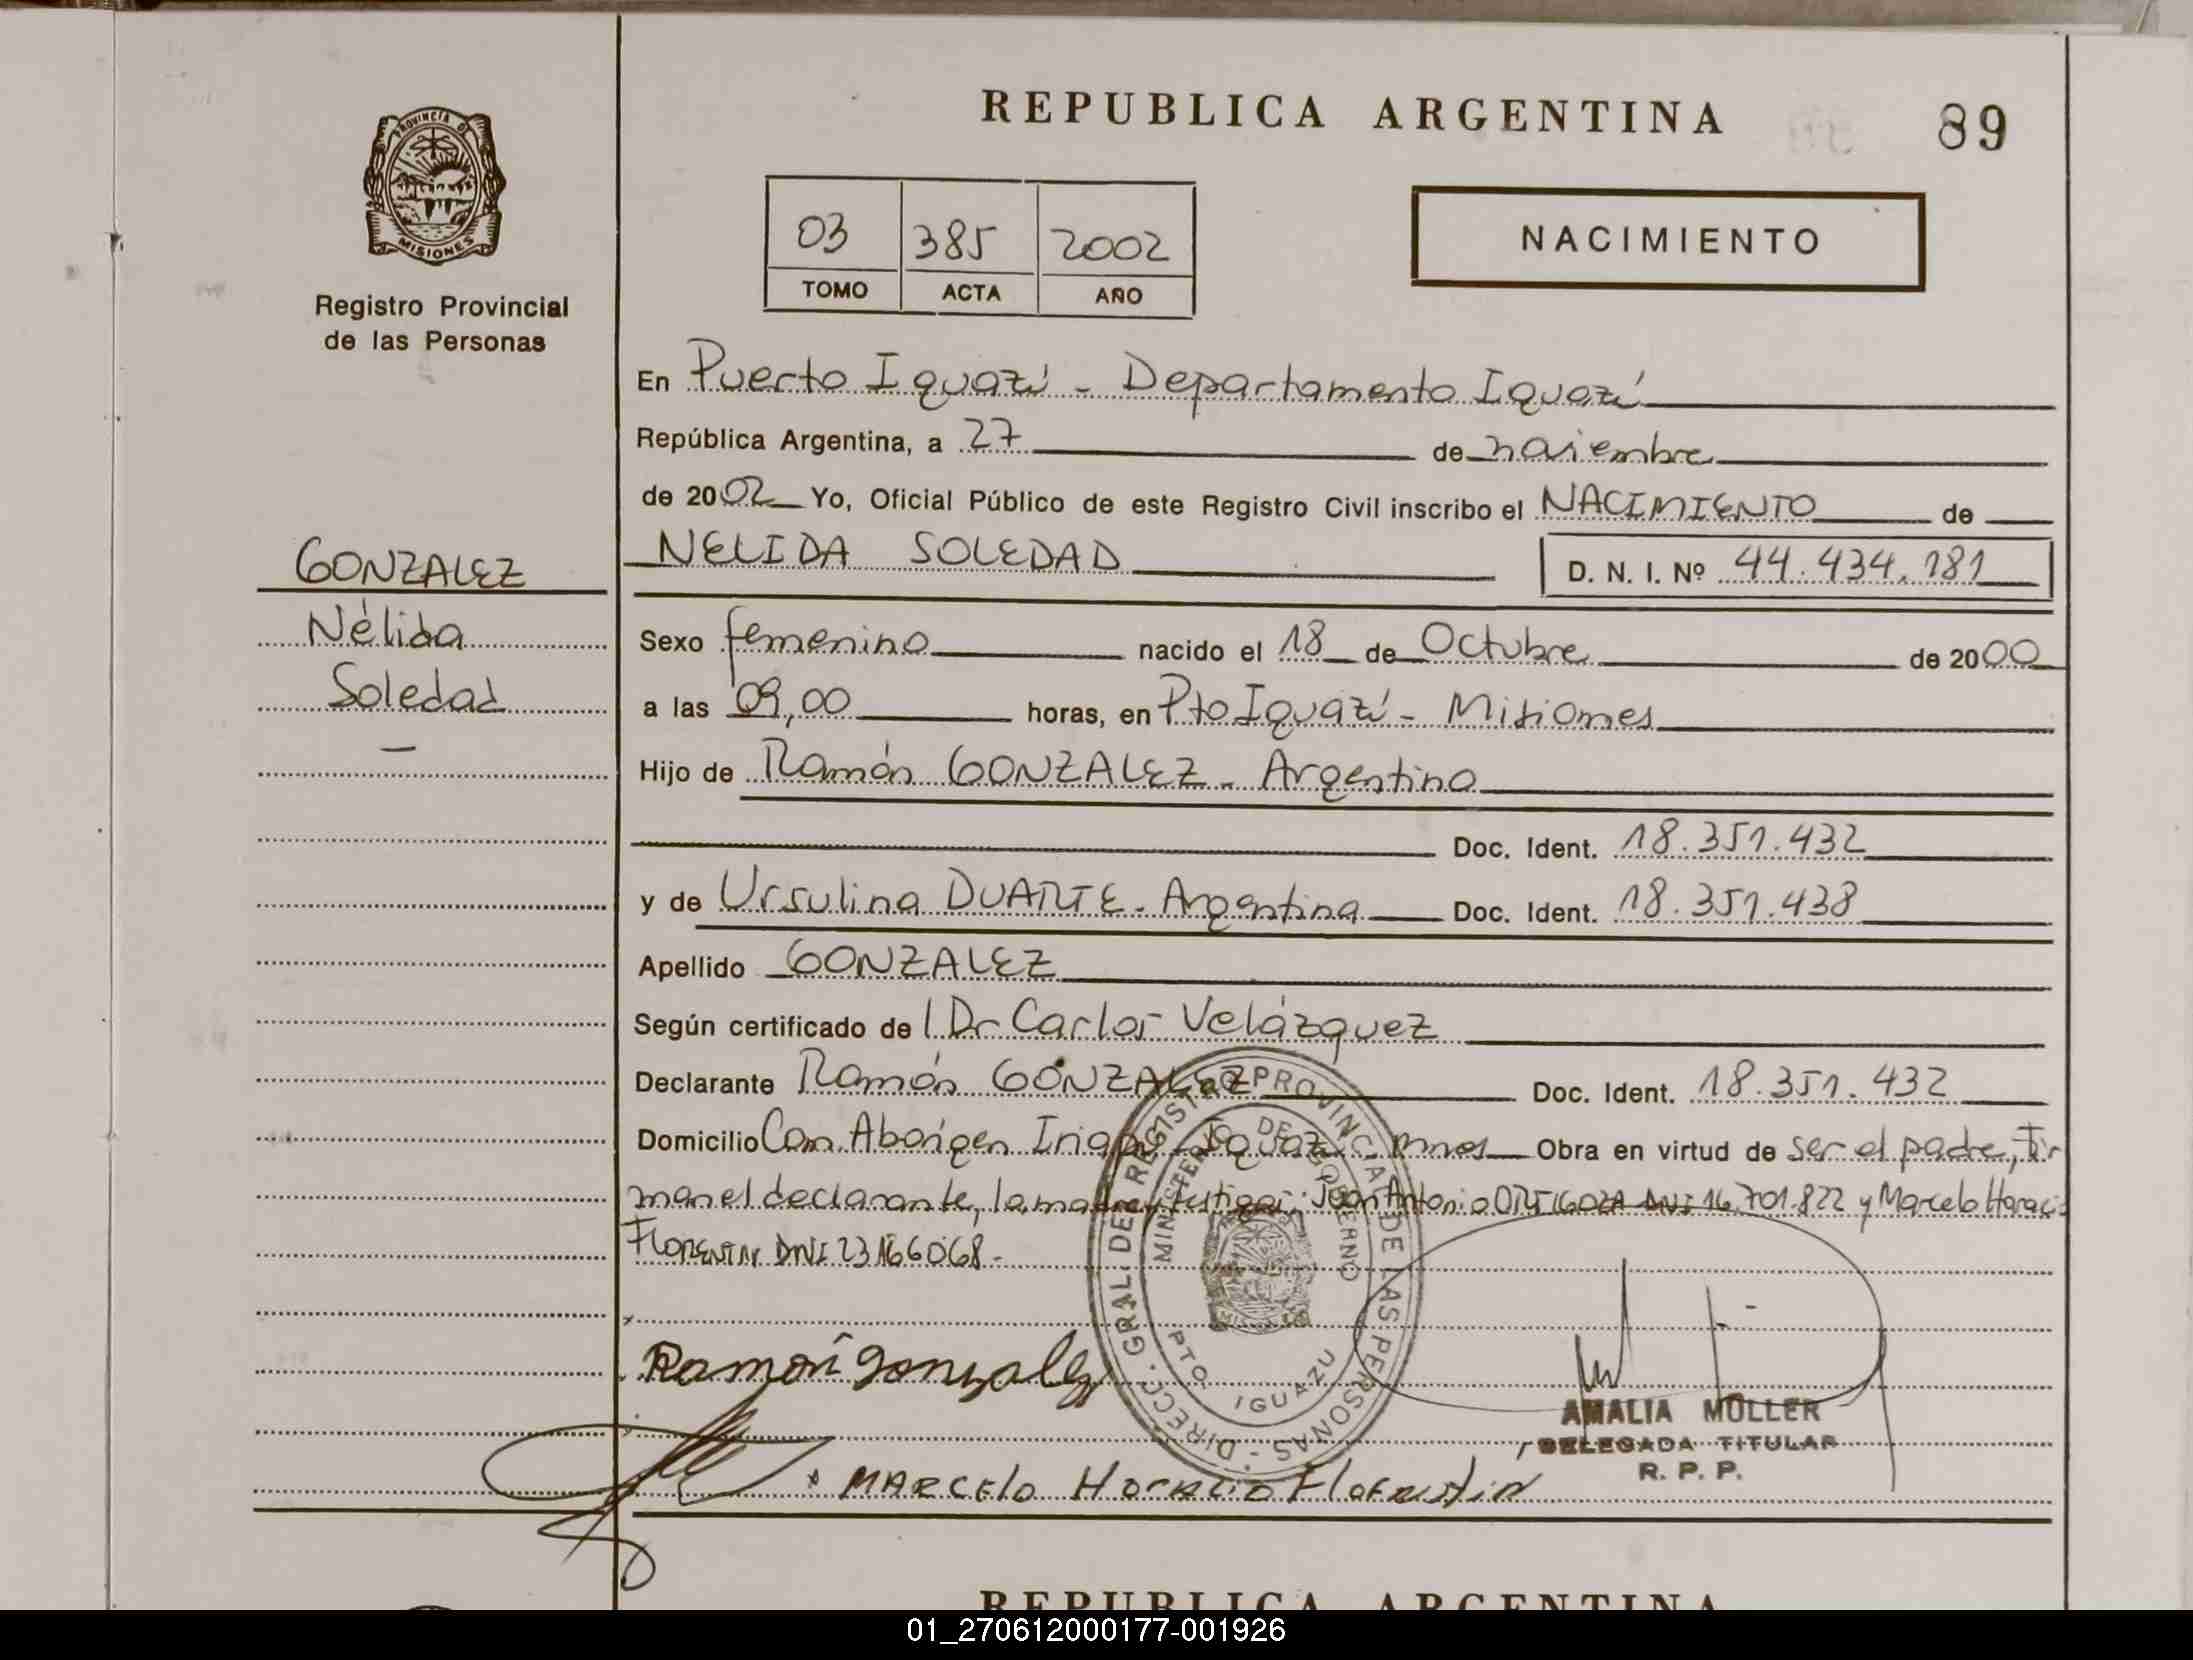 REPUBLICA ARGENTINA
89
PROVINCIA DE
MISIONES
Registro Provincial
de las Personas
03 385 2002
TOMO ACTA AÑO
NACIMIENTO
En Puerto Iguazú - Departamento Iguazú
República Argentina, a 27 de noviembre
de 2002 Yo, Oficial Público de este Registro Civil inscribo el NACIMIENTO de
NELIDA SOLEDAD D. N. I. Nº 44.434.181
GONZALEZ
Nélida
Soledad
Sexo femenino nacido el 18 de Octubre de 2000
a las 09,00 horas, en Pto Iguazú - Misiones
Hijo de Ramón GONZALEZ - Argentino
Doc. Ident. 18.351.432
y de Ursulina DUARTE - Argentina Doc. Ident. 18.351.438
Apellido GONZALEZ
Según certificado de Dr Carlos Velázquez
Declarante Ramón GONZALEZ Doc. Ident. 18.351.432
Domicilio Com. Aborigen Iriapú - Iguazú - Mnes Obra en virtud de ser el padre, Fir
man el declarante, la madre y testigos: Juan Antonio ORTIGOZA DNI 16.701.822 y Marcelo Horacio
FLORENTIN DNI 23166068 -
DIRECC. GRAL. DEL REGISTRO PROVINCIAL DE LAS PERSONAS -
MINISTERIO DE GOBERNO
PTO. IGUAZU
Ramón Gonzalez
AMALIA MÖLLER
DELEGADA TITULAR
R. P. P.
x MARCELO HORACIO FlorENtiN
REPUBLICA ARGENTINA
01_270612000177-001926